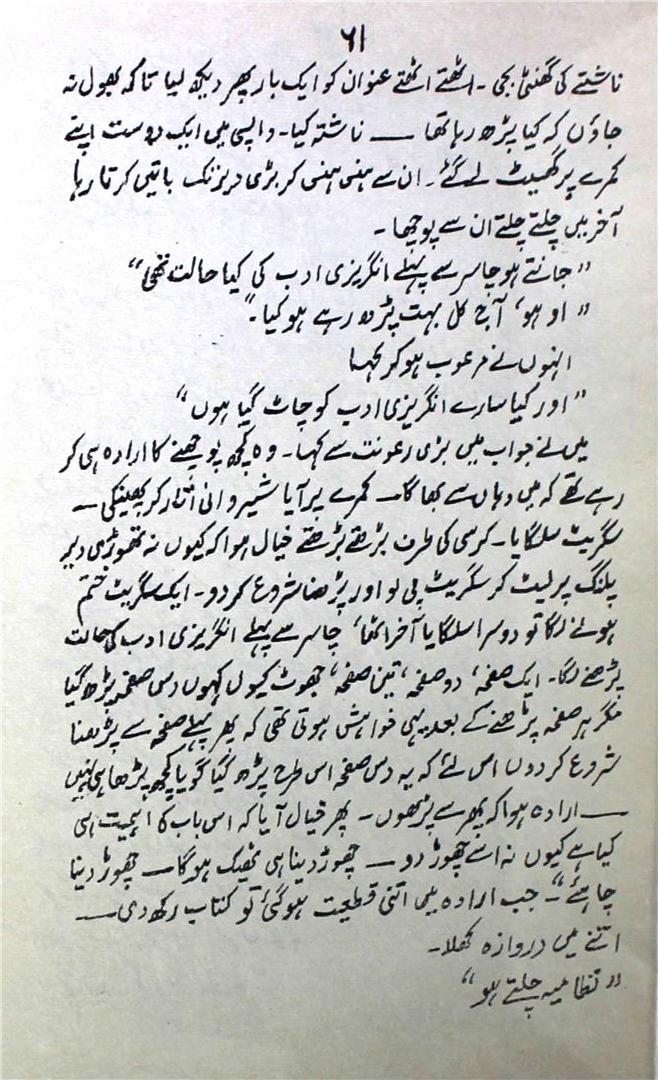 ۶۱
ناشتے کی گھنٹی بجی ۔ اٹھتے اٹھتے عنوان کو ایک بار پھر دیکھ لیا تاکہ بھول نہ
جاؤں کہ کیا پڑھ رہا تھا ـــ ناشتہ کیا۔ واپسی میں ایک دوست اپنے
کمرے پر گھسیٹ لے گئے۔ ان سے ہنسی ہنسی کر بڑی دیر تک باتیں کرتا رہا
آخر میں چلتے چلتے ان سے پوچھا ۔
"جانتے ہو چاسر سے پہلے انگریزی ادب کی کیا حالت تھی"
"او ہو، آج کل بہت پڑھ رہے ہو کیا۔"
انہوں نے مرعوب ہو کر کہا
"اور کیا سارے انگریزی ادب کو چاٹ گیا ہوں"
میں نے جواب میں بڑی رعونت سے کہا۔ وہ کچھ پوچھنے کا ارادہ ہی کر
رہے تھے کہ میں وہاں سے بھاگا ـ کمرے پر آیا شیروانی اُتار کر پھینکی ـــ
سگریٹ سلگایا ـ کرسی کی طرف بڑھتے بڑھتے خیال ہوا کہ کیوں نہ تھوڑی دیر
پلنگ پر لیٹ کر سگریٹ پی لو اور پڑھنا شروع کر دو ۔ ایک سگریٹ ختم
ہونے لگا تو دوسرا سلگایا آخر اٹھا، چاسر سے پہلے انگریزی ادب کی حالت
پڑھنے لگا۔ ایک صفحہ، دو صفحہ، تین صفحہ، جھوٹ کیوں کہوں دس صفحہ پڑھ گیا
مگر ہر صفحہ پڑھنے کے بعد یہی خواہش ہوتی تھی کہ پھر پہلے صفحہ سے پڑھنا
شروع کر دوں اس لئے کہ یہ دس صفحہ اس طرح پڑھ گیا گویا کچھ پڑھا ہی نہیں
ـــ ارادہ ہوا کہ پھر سے پڑھوں ۔ پھر خیال آیا کہ اس باب کا اہمیت ہی
کیا ہے کیوں نہ اسے چھوڑ دو ـــ چھوڑ دینا ہی ٹھیک ہوگا ـــ چھوڑ دینا
چاہئے"۔ جب ارادہ میں اتنی قطعیت ہوگئی تو کتاب رکھ دی ـــ
اتنے میں دروازہ کھلا ۔
"نظامیہ چلتے ہو"